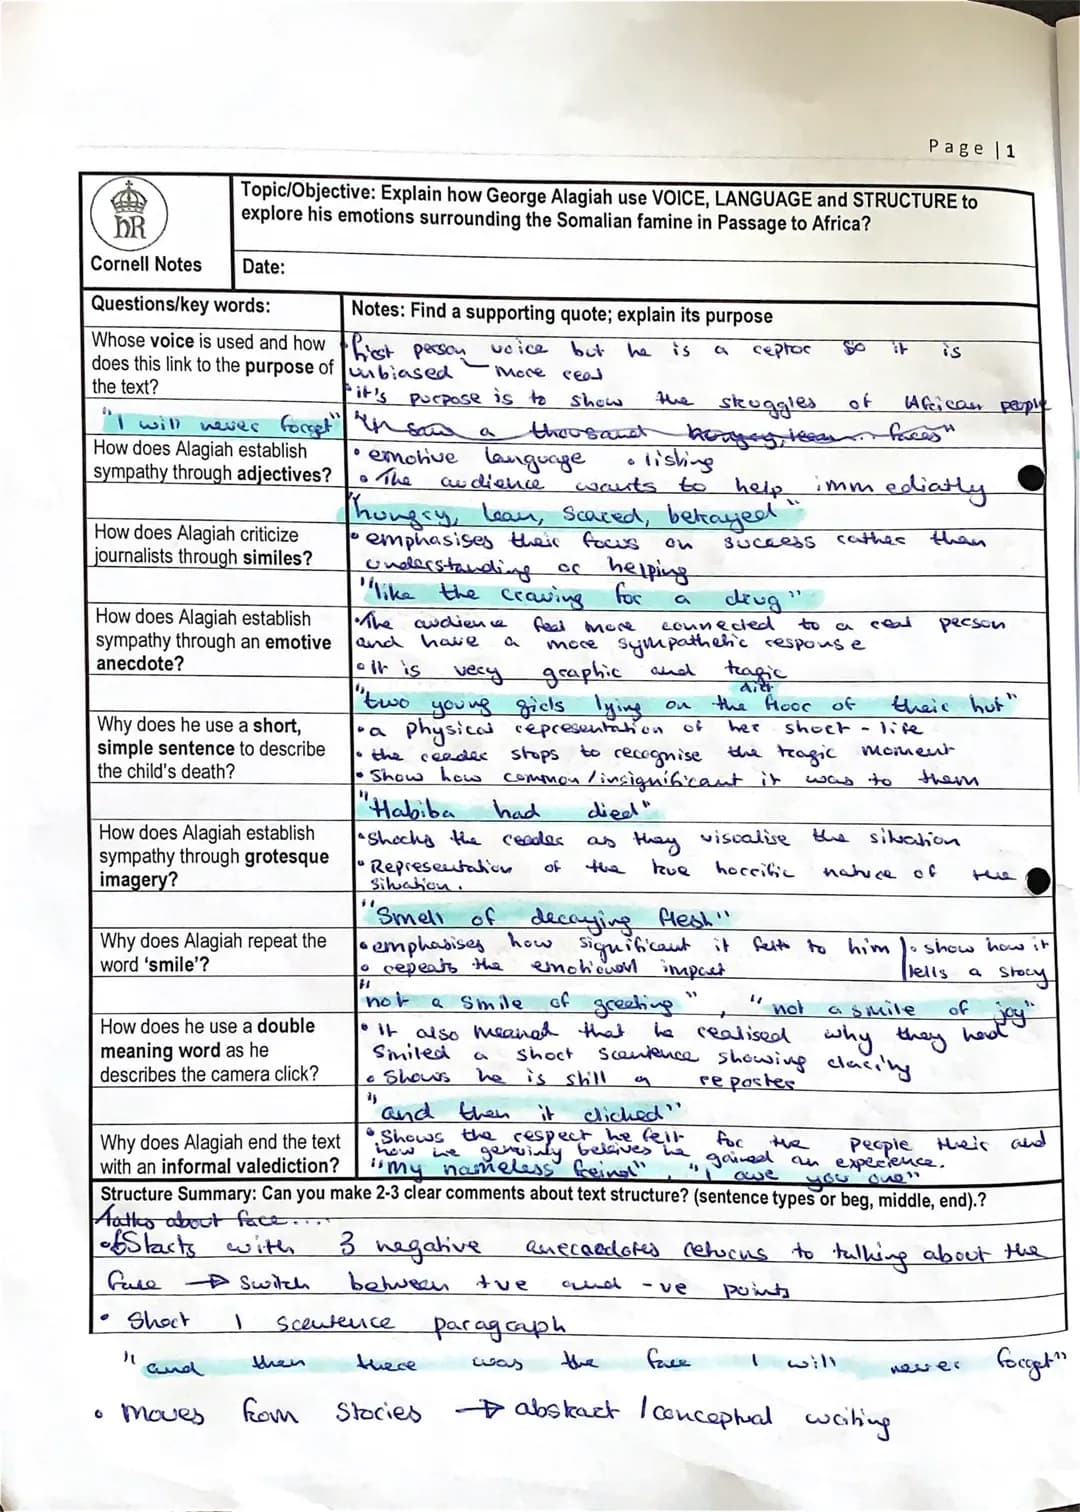 Page | 1
hR
Topic/Objective: Explain how George Alagiah use VOICE, LANGUAGE and STRUCTURE to
explore his emotions surrounding the Somalian famine in Passage to Africa?
Cornell Notes
Date:
Questions/key words:
Notes: Find a supporting quote; explain its purpose
Whose voice is used and how
does this link to the purpose of
the text?
"I will never forget"
first person voice but he is a so it is
unbiased more real
• it's purpose is to show the struggles of African people
"I saw a thousand hungry, lean.. faces"
How does Alagiah establish
sympathy through adjectives?
• emotive language • listing
• The audience wants to help immediatly
"hungry, lean, scared, betrayed"
How does Alagiah criticize
journalists through similes?
• emphasises their focus on success rather than
understanding or helping
"like the craving for a drug"
How does Alagiah establish
sympathy through an emotive
anecdote?
• The audience feel more connected to a real person
and have a more sympathetic response
• It is very graphic and tragic
dirt
"two young girls lying on the floor of their hut"
Why does he use a short,
simple sentence to describe
the child's death?
• a physical representation of her short-life
• the reader stops to recognise the tragic moment
• Show how common/insignificant it was to them
"Habiba had died"
How does Alagiah establish
sympathy through grotesque
imagery?
• Shocks the reader as they visualise the situation
• Representation of the true horrific nature of the
situation.
"Smell of decaying flesh"
Why does Alagiah repeat the
word 'smile'?
• emphasises how significant it felt to him • show how it
• repeats the emotional impact tells a story
"not a smile of greeting", "not a smile of joy"
How does he use a double
meaning word as he
describes the camera click?
• It also meaned that he realised why they had
Smiled a short scentence showing clarity
• Shows he is still a reporter
"and then it clicked"
Why does Alagiah end the text
with an informal valediction?
• Shows the respect he felt for the people their and
how he genuinly beleives he gained an experience.
"my nameless freind", "I owe you one"
Structure Summary: Can you make 2-3 clear comments about text structure? (sentence types or beg, middle, end).?
Talks about face....
• Starts with 3 negative anecaedotes returns to talking about the
face → Switch between +ve and -ve points
• Short 1 scentence paragraph
"and then there was the face I will never forget"
• Moves from Stories → abstract / conceptual writing